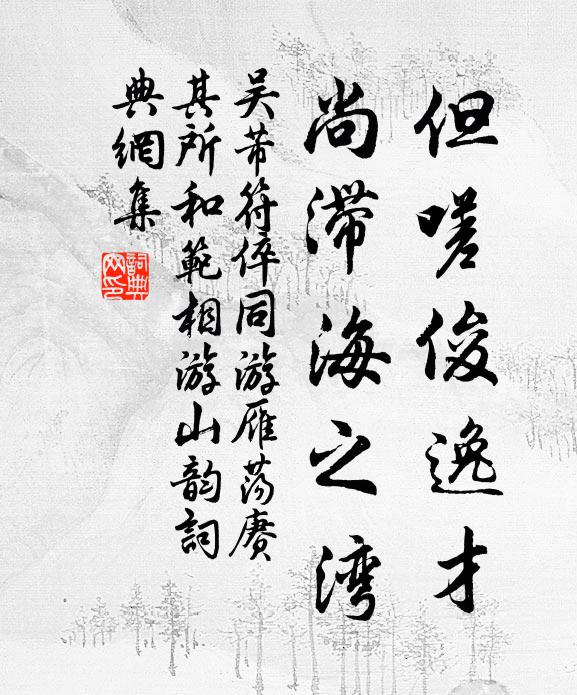 但嗟俊逸才
尚滞海之湾
吴芾符倅同游雁荡赓
其所和範相游山韵詞
典網集
詞典网印